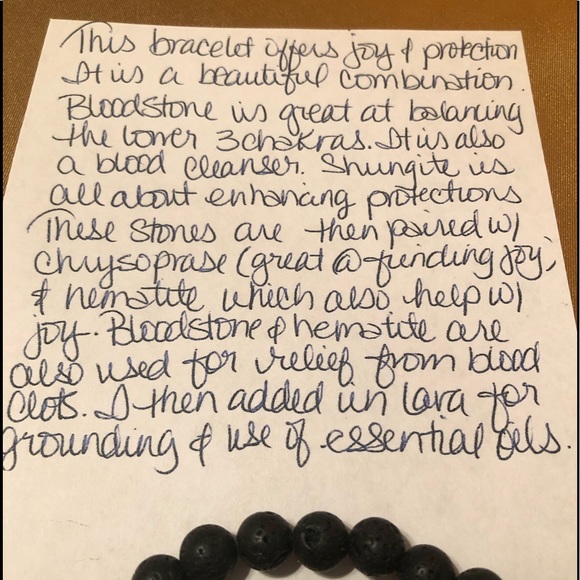 This bracelet offers joy & protection
It is a beautiful combination.
Bloodstone is great at balancing
the lower 3 chakras. It is also
a blood cleanser. Shungite is
all about enhancing protections
These stones are then paired w/
chrysoprase (great @ finding joy)
& hematite which also help w/
joy. Bloodstone & hematite are
also used for relief from blood
clots. I then added in lava for
grounding & use of essential oils.